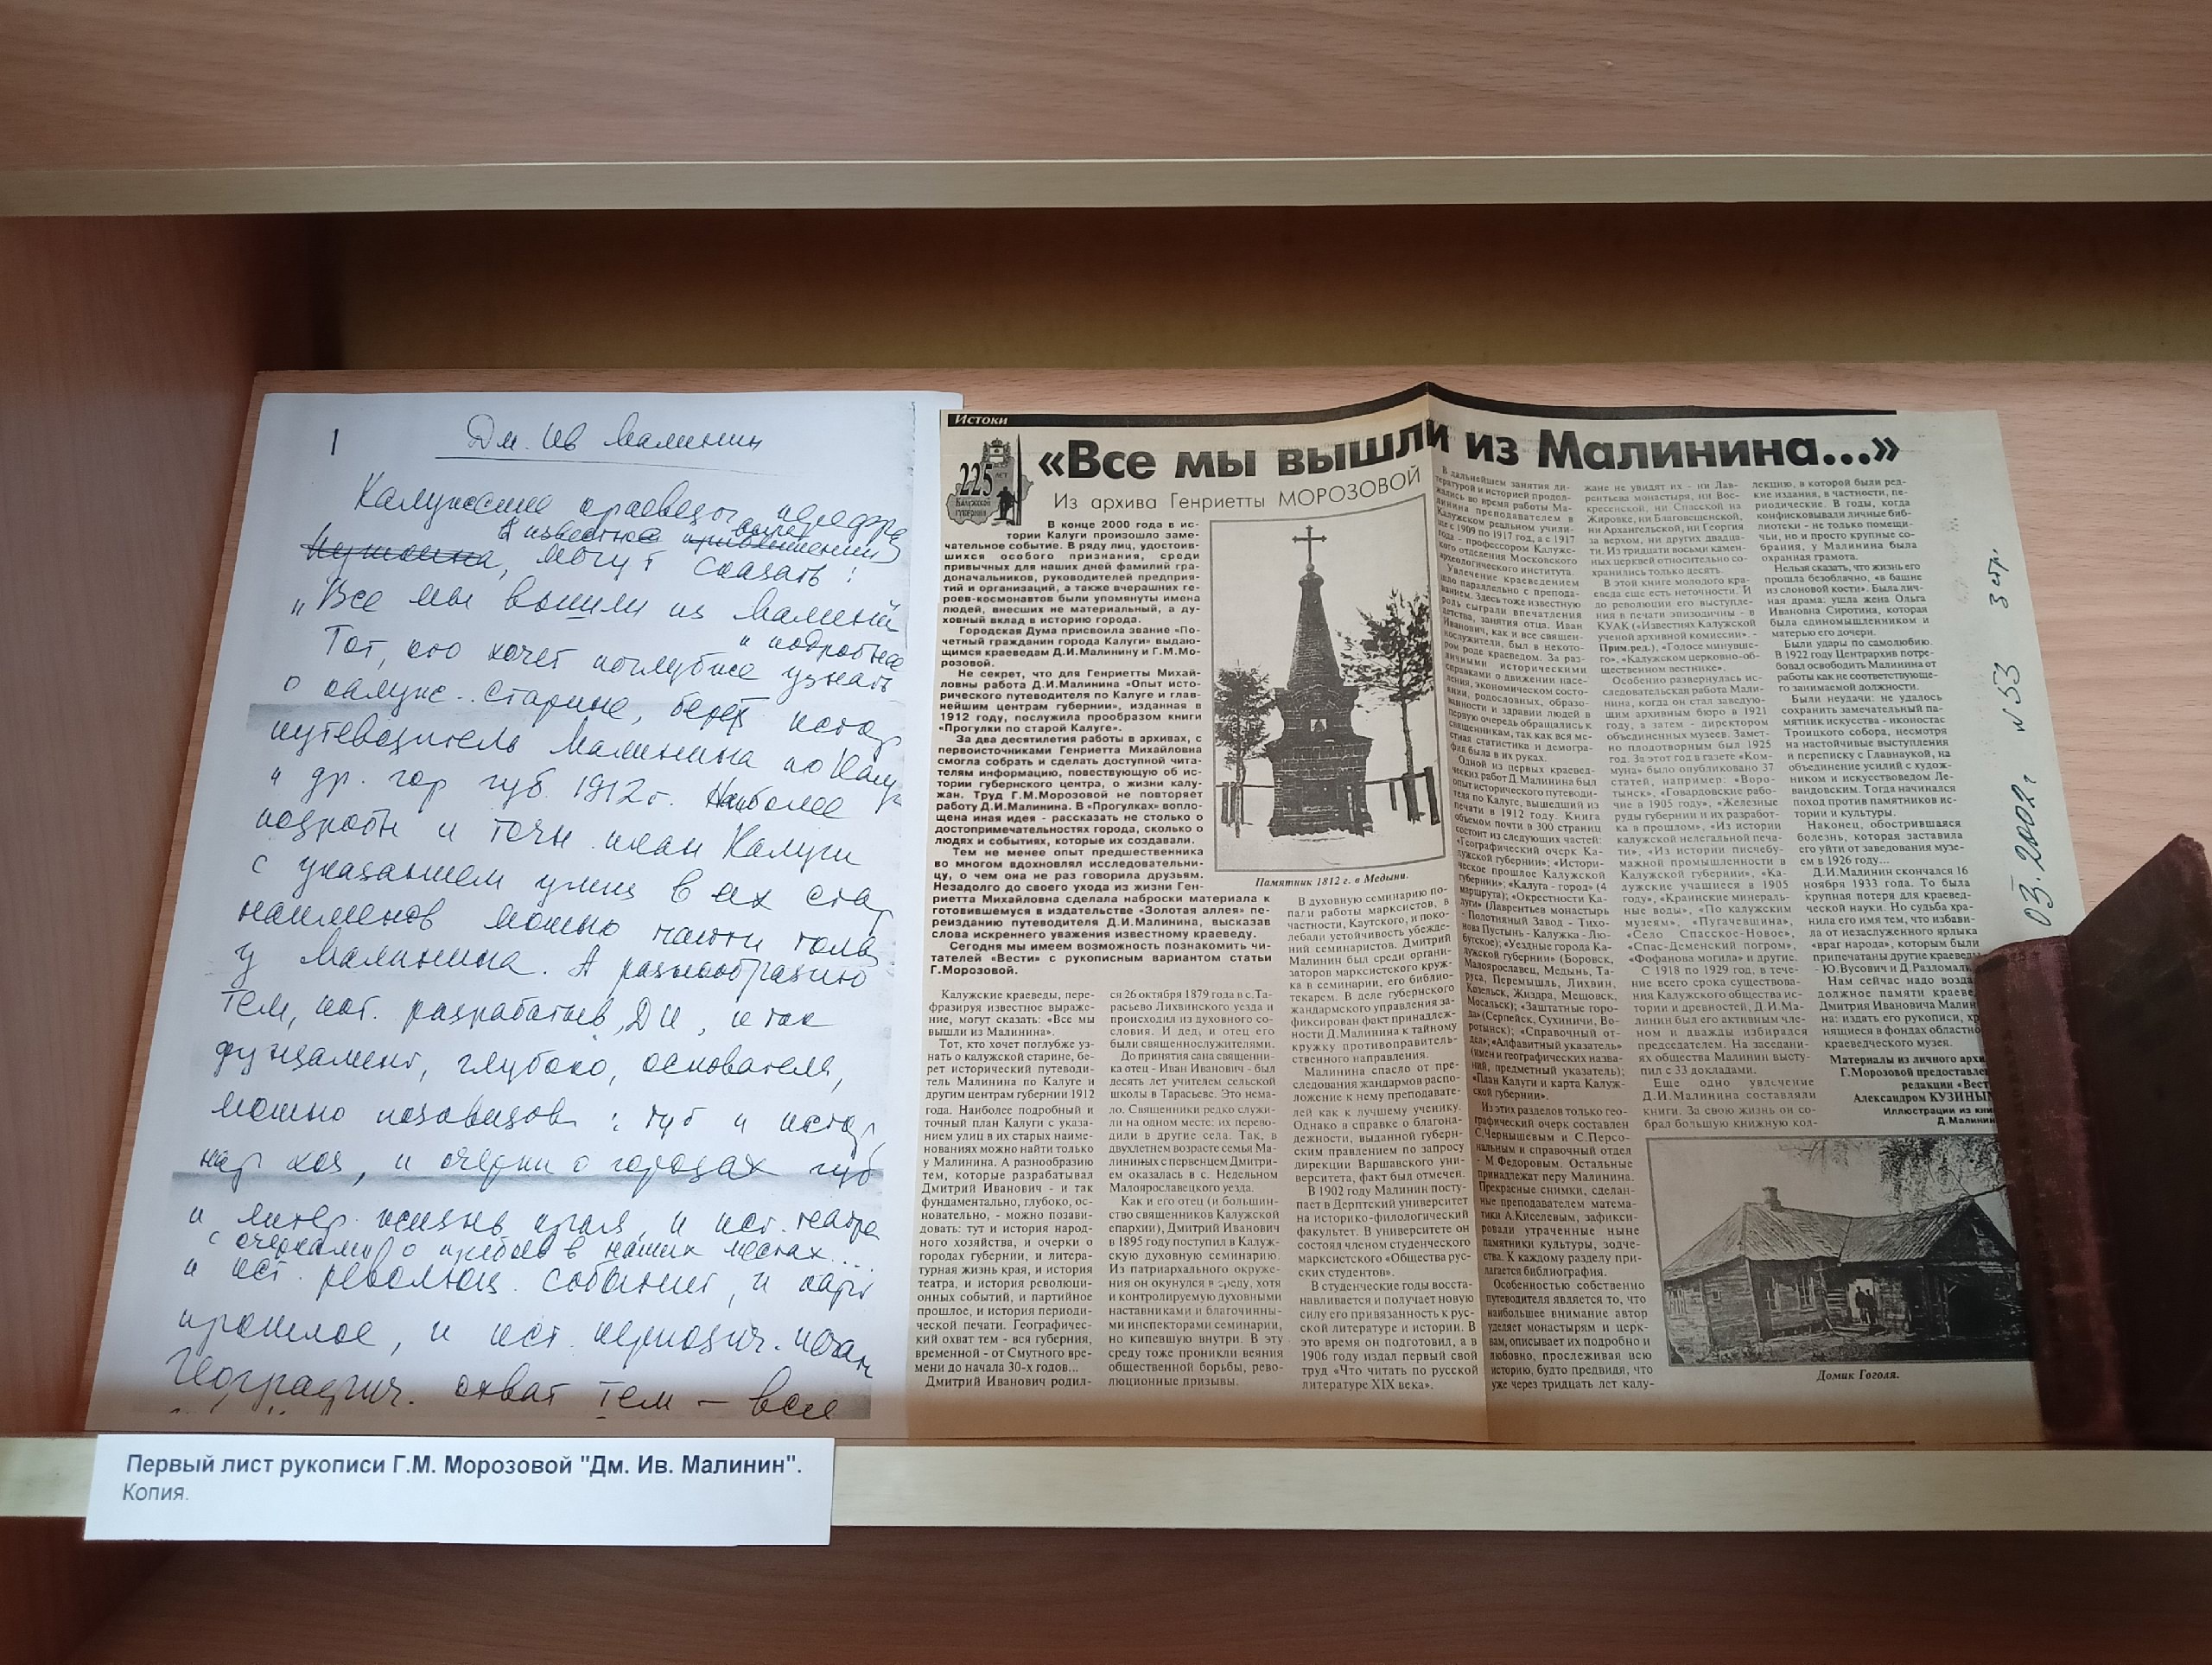 1
Дм. Ив Малинин
Калужские краеведы, перефра
в известное выраж
могут сказать:
"Все мы вышли из Малинин
Тот, кто хочет поглубже узнать
и подробнее
о калуж. старине, берет истор
путеводитель Малинина по Калу
и др. гор губ. 1912 г. Наиболее
подробн и точн план Калуги
с указанием улиц в их стар
наименов можно найти толь
у Малинина. А разнообразию
тем, кот. разрабатыв Д И, и так
фундамент, глубоко, основател,
можно позавидов: тут и истор
нар хоз, и очерки о городах губ
и литер. жизнь края, и ист. театра
с очерками о в наших местах....
и ист. революц. событий, и парт
прошлое, и ист. периодич. печат
Географич. охват тем – вся
Первый лист рукописи Г.М. Морозовой "Дм. Ив. Малинин".
Копия.
Истоки
225 ЛЕТ
Калужской
губернии
«Все мы вышли из Малинина...»
Из архива Генриетты МОРОЗОВОЙ
В конце 2000 года в ис-
тории Калуги произошло заме-
чательное событие. В ряду лиц, удостоив-
шихся особого признания, среди
привычных для наших дней фамилий гра-
доначальников, руководителей предприя-
тий и организаций, а также вчерашних ге-
роев-космонавтов были упомянуты имена
людей, внесших не материальный, а ду-
ховный вклад в историю города.
Городская Дума присвоила звание «По-
четный гражданин города Калуги» выдаю-
щимся краеведам Д.И.Малинину и Г.М.Мо-
розовой.
Не секрет, что для Генриетты Михай-
ловны работа Д.И.Малинина «Опыт исто-
рического путеводителя по Калуге и глав-
нейшим центрам губернии», изданная в
1912 году, послужила прообразом книги
«Прогулки по старой Калуге».
За два десятилетия работы в архивах, с
первоисточниками Генриетта Михайловна
смогла собрать и сделать доступной чита-
телям информацию, повествующую об ис-
тории губернского центра, о жизни калу-
жан. Труд Г.М.Морозовой не повторяет
работу Д.И.Малинина. В «Прогулках» вопло-
щена иная идея - рассказать не столько о
достопримечательностях города, сколько о
людях и событиях, которые их создавали.
Тем не менее опыт предшественника
во многом вдохновлял исследовательни-
цу, о чем она не раз говорила друзьям.
Незадолго до своего ухода из жизни Ген-
риетта Михайловна сделала наброски материала к
готовившемуся в издательстве «Золотая аллея» пе-
реизданию путеводителя Д.И.Малинина, высказав
слова искреннего уважения известному краеведу.
Сегодня мы имеем возможность познакомить чи-
тателей «Вести» с рукописным вариантом статьи
Г.Морозовой.
Памятник 1812 г. в Медыни.
Калужские краеведы, пере-
фразируя известное выраже-
ние, могут сказать: «Все мы
вышли из Малинина».
Тот, кто хочет поглубже уз-
нать о калужской старине, бе-
рет исторический путеводи-
тель Малинина по Калуге и
другим центрам губернии 1912
года. Наиболее подробный и
точный план Калуги с указа-
нием улиц в их старых наиме-
нованиях можно найти только
у Малинина. А разнообразию
тем, которые разрабатывал
Дмитрий Иванович - и так
фундаментально, глубоко, ос-
новательно, - можно позави-
довать: тут и история народ-
ного хозяйства, и очерки о
городах губернии, и литера-
турная жизнь края, и история
театра, и история революци-
онных событий, и партийное
прошлое, и история периоди-
ческой печати. Географичес-
кий охват тем - вся губерния,
временной - от Смутного вре-
мени до начала 30-х годов...
Дмитрий Иванович родил-
ся 26 октября 1879 года в с.Та-
расьево Лихвинского уезда и
происходил из духовного со-
словия. И дед, и отец его
были священнослужителями.
До принятия сана священни-
ка отец - Иван Иванович - был
десять лет учителем сельской
школы в Тарасьеве. Это нема-
ло. Священники редко служи-
ли на одном месте: их перево-
дили в другие села. Так, в
двухлетнем возрасте семья Ма-
лининых с первенцем Дмитри-
ем оказалась в с. Недельном
Малоярославецкого уезда.
Как и его отец (и большин-
ство священников Калужской
епархии), Дмитрий Иванович
в 1895 году поступил в Калуж-
скую духовную семинарию.
Из патриархального окруже-
ния он окунулся в среду, хотя
и контролируемую духовными
наставниками и благочинны-
ми инспекторами семинарии,
но кипевшую внутри. В эту
среду тоже проникли веяния
общественной борьбы, рево-
люционные призывы.
В духовную семинарию по-
пали работы марксистов, в
частности, Каутского, и поко-
лебали устойчивость убежде-
ний семинаристов. Дмитрий
Малинин был среди органи-
заторов марксистского круж-
ка в семинарии, его библио-
текарем. В деле губернского
жандармского управления за-
фиксирован факт принадлеж-
ности Д.Малинина к тайному
кружку противоправитель-
ственного направления.
Малинина спасло от пре-
следования жандармов распо-
ложение к нему преподавате-
лей как к лучшему ученику.
Однако в справке о благона-
дежности, выданной губерн-
ским правлением по запросу
дирекции Варшавского уни-
верситета, факт был отмечен.
В 1902 году Малинин посту-
пает в Дерптский университет
на историко-филологический
факультет. В университете он
состоял членом студенческого
марксистского «Общества рус-
ских студентов».
В студенческие годы восста-
навливается и получает новую
силу его привязанность к рус-
ской литературе и истории. В
это время он подготовил, а в
1906 году издал первый свой
труд «Что читать по русской
литературе XIX века».
В дальнейшем занятия ли-
тературой и историей продол-
жались во время работы Ма-
линина преподавателем в
Калужском реальном учили-
ще с 1909 по 1917 год, а с 1917
года - профессором Калужс-
кого отделения Московского
археологического института.
Увлечение краеведением
шло параллельно с препода-
ванием. Здесь тоже известную
роль сыграли впечатления
детства, занятия отца. Иван
Иванович, как и все священ-
нослужители, был в некото-
ром роде краеведом. За раз-
личными историческими
справками о движении насе-
ления, экономическом состо-
янии, родословных, образо-
ванности и здравии людей в
первую очередь обращались к
священникам, так как вся ме-
стная статистика и демогра-
фия была в их руках.
Одной из первых краевед-
ческих работ Д.Малинина был
опыт исторического путеводи-
теля по Калуге, вышедший из
печати в 1912 году. Книга
объемом почти в 300 страниц
состоит из следующих частей:
«Географический очерк Ка-
лужской губернии»; «Истори-
ческое прошлое Калужской
губернии»; «Калуга - город» (4
маршрута); «Окрестности Ка-
луги» (Лаврентьев монастырь
- Полотняный Завод - Тихо-
нова Пустынь - Калужка - Лю-
бутское); «Уездные города Ка-
лужской губернии» (Боровск,
Малоярославец, Медынь, Та-
руса, Перемышль, Лихвин,
Козельск, Жиздра, Мещовск,
Мосальск); «Заштатные горо-
да» (Серпейск, Сухиничи, Во-
ротынск); «Справочный от-
дел»; «Алфавитный указатель»
(имен и географических назва-
ний, предметный указатель);
«План Калуги и карта Калуж-
ской губернии».
Из этих разделов только гео-
графический очерк составлен
С.Чернышевым и С.Персо-
нальным и справочный отдел
- М.Федоровым. Остальные
принадлежат перу Малинина.
Прекрасные снимки, сделан-
ные преподавателем матема-
тики А.Киселевым, зафикси-
ровали утраченные ныне
памятники культуры, зодче-
ства. К каждому разделу при-
лагается библиография.
Особенностью собственно
путеводителя является то, что
наибольшее внимание автор
уделяет монастырям и церк-
вам, описывает их подробно и
любовно, прослеживая всю
историю, будто предвидя, что
уже через тридцать лет калу-
жане не увидят их - ни Лав-
рентьева монастыря, ни Вос-
кресенской, ни Спасской на
Жировке, ни Благовещенской,
ни Архангельской, ни Георгия
за верхом, ни других двадца-
ти. Из тридцати восьми камен-
ных церквей относительно со-
хранились только десять.
В этой книге молодого кра-
еведа еще есть неточности. И
до революции его выступле-
ния в печати эпизодичны - в
КУАК («Известиях Калужской
ученой архивной комиссии». -
Прим.ред.), «Голосе минувше-
го», «Калужском церковно-об-
щественном вестнике».
Особенно развернулась ис-
следовательская работа Мали-
нина, когда он стал заведую-
щим архивным бюро в 1921
году, а затем - директором
объединенных музеев. Замет-
но плодотворным был 1925
год. За этот год в газете «Ком-
муна» было опубликовано 37
статей, например: «Воро-
тынск», «Говардовские рабо-
чие в 1905 году», «Железные
руды губернии и их разработ-
ка в прошлом», «Из истории
калужской нелегальной печа-
ти», «Из истории писчебу-
мажной промышленности в
Калужской губернии», «Ка-
лужские учащиеся в 1905
году», «Краинские минераль-
ные воды», «По калужским
музеям», «Пугачевщина»,
«Село Спасское-Новое»,
«Спас-Деменский погром»,
«Фофанова могила» и другие.
С 1918 по 1929 год, в тече-
ние всего срока существова-
ния Калужского общества ис-
тории и древностей, Д.И.Ма-
линин был его активным чле-
ном и дважды избирался
председателем. На заседани-
ях общества Малинин высту-
пил с 33 докладами.
Еще одно увлечение
Д.И.Малинина составляли
книги. За свою жизнь он со-
брал большую книжную кол-
лекцию, в которой были ред-
кие издания, в частности, пе-
риодические. В годы, когда
конфисковывали личные биб-
лиотеки - не только помещи-
чьи, но и просто крупные со-
брания, у Малинина была
охранная грамота.
Нельзя сказать, что жизнь его
прошла безоблачно, «в башне
из слоновой кости». Была лич-
ная драма: ушла жена Ольга
Ивановна Сиротина, которая
была единомышленником и
матерью его дочери.
Были удары по самолюбию.
В 1922 году Центрархив потре-
бовал освободить Малинина от
работы как не соответствующе-
го занимаемой должности.
Были неудачи: не удалось
сохранить замечательный па-
мятник искусства - иконостас
Троицкого собора, несмотря
на настойчивые выступления
и переписку с Главнаукой, на
объединение усилий с худож-
ником и искусствоведом Ле-
вандовским. Тогда начинался
поход против памятников ис-
тории и культуры.
Наконец, обострившаяся
болезнь, которая заставила
его уйти от заведования музе-
ем в 1926 году...
Д.И.Малинин скончался 16
ноября 1933 года. То была
крупная потеря для краевед-
ческой науки. Но судьба хра-
нила его имя тем, что избави-
ла от незаслуженного ярлыка
«враг народа», которым были
припечатаны другие краеведы
- Ю.Вусович и Д.Разломал
Нам сейчас надо возда
должное памяти краеве
Дмитрия Ивановича Малин
на: издать его рукописи, хр
нящиеся в фондах областно
краеведческого музея.
Материалы из личного архи
Г.Морозовой предоставле
редакции «Вест
Александром КУЗИНЫМ
Иллюстрации из кни
Д.Малинин
Домик Гоголя.
03. 2002 г N 53 3 стр.